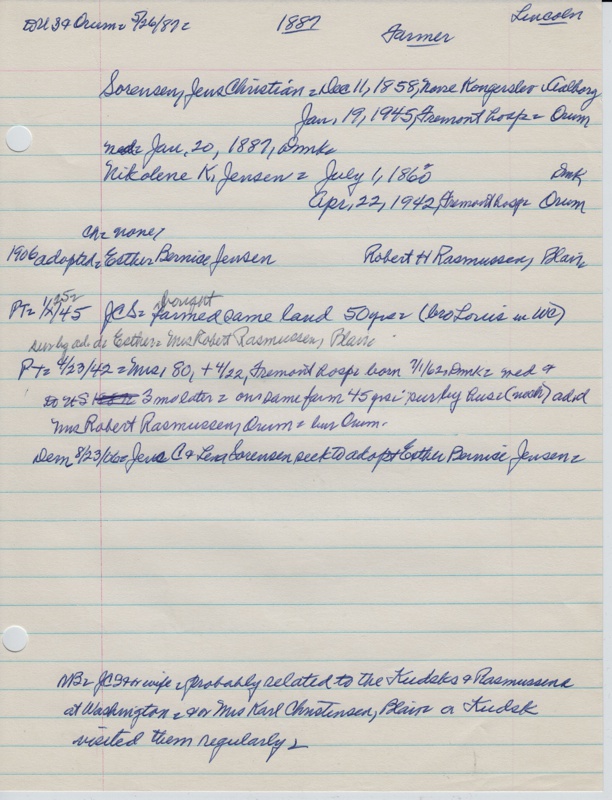 to US & Orum = 5/26/87 = 1887 Farmer Lincoln
Sorensen, Jens Christian = Dec 11, 1858, Norre Kongerslev Aalborg
Jan, 19, 1945, Fremont hosp = Orum
med = Jan, 20, 1887, Dmk =
Nikolene K, Jensen = July 1, 1860 Dmk
Apr, 22, 1942, Fremont hosp = Orum
ch = none,
1906 adopted = Esther Bernise Jensen Robert H Rasmussen, Blair
PT = 1/25 = bought
/45 JCS = farmed same land 50 yrs = (bro Louis in WC)
surby ad d Esther = Mrs Robert Rasmussen, Blair
PT = 4/23/42 = Mrs, 80, + 4/22, Fremont hosp = born 7/1/62, Dmk = med &
to US 3 mo later = on same farm 45 yrs = surby husc (noch) ad d
Mrs Robert Rasmussen, Orum = bur Orum.
Dem 8/23/06 = Jens C & Lena Sorensen seek to adopt Esther Bernise Jensen =
NB = JCS &or wife, probably related to the Kudsks & Rasmussens
at Washington = &or Mrs Karl Christensen, Blair a Kudsk
visited them regularly